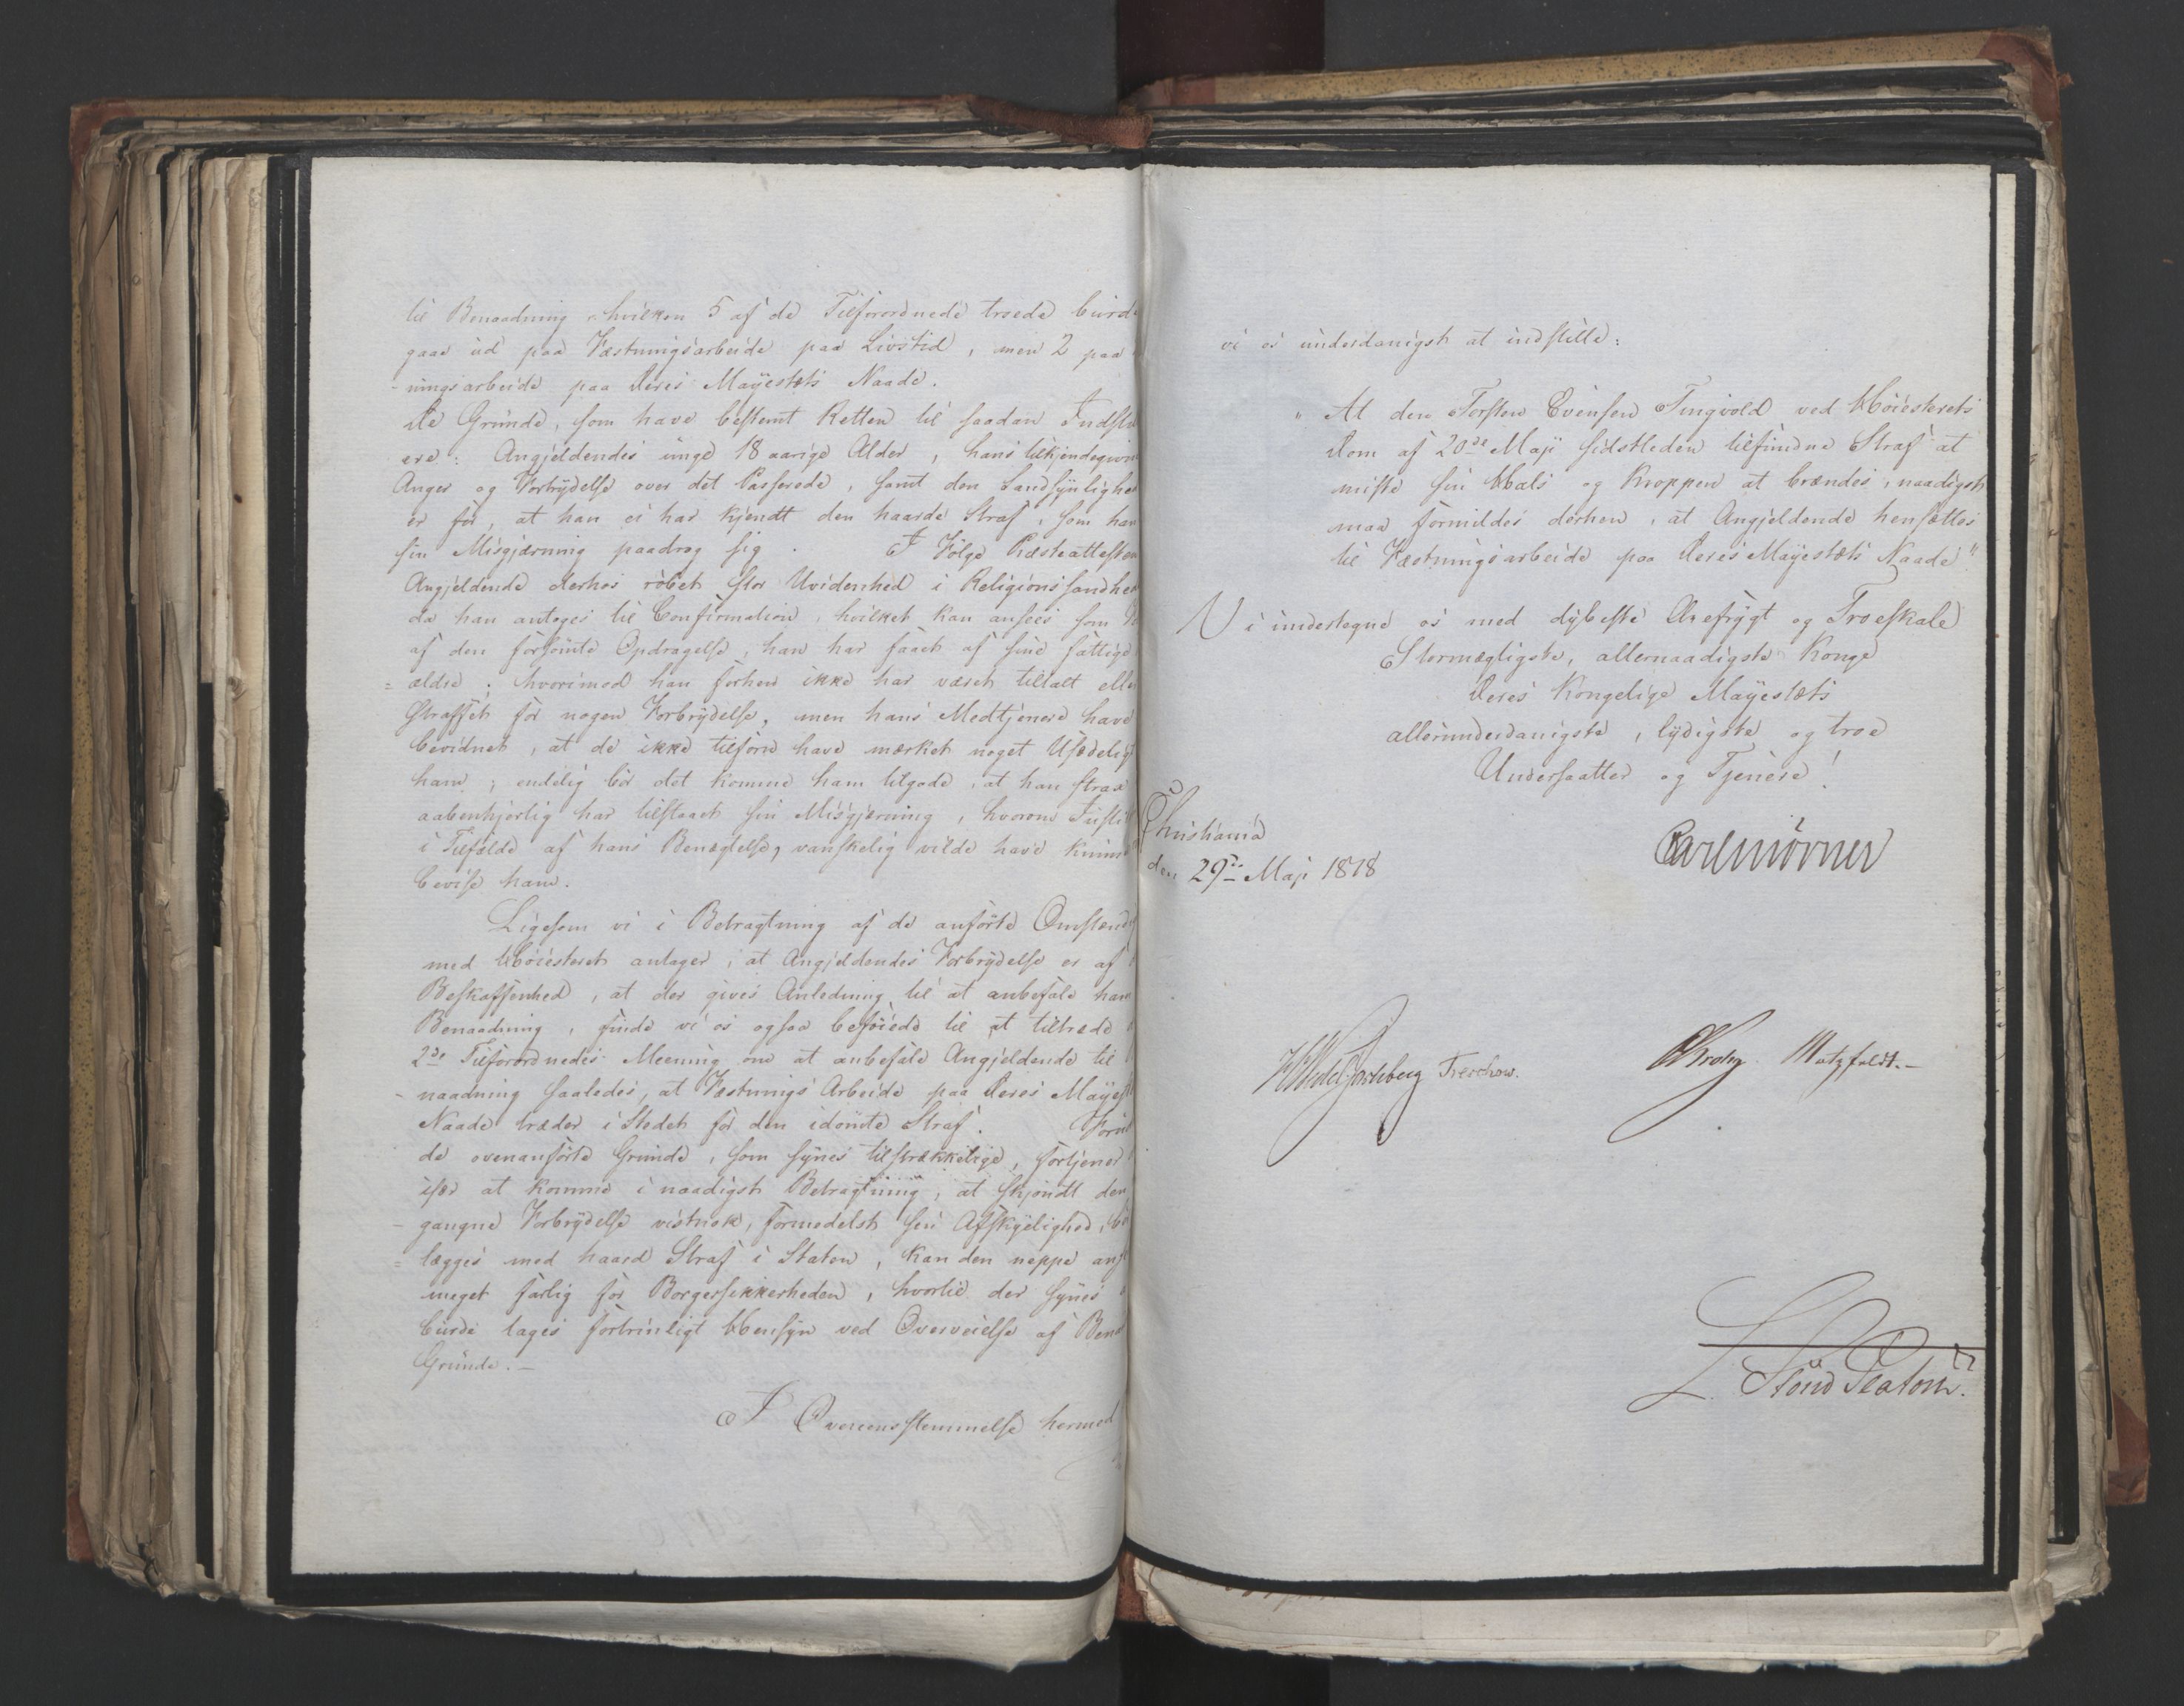 til Benaadning, hvilken 5 af de Tilforordnede troede burde
gaae ud paa Fæstningsarbeide paa Livstid, men 2 paa
-ningsarbeide paa Deres Mayestæts Naade.
De Grunde, som have bestemt Retten til saadan Indstil
ere: Angjeldendes unge 18 aarige Alder, hans tilkjendegivne
Anger og Fortrydelse over det Passerede, samt den Sandsynlighed
er for, at han ei har kjendt den haarde Straf, som han
sin Misgjærning paadrog sig. I Følge Præsteattesten
Angjeldende derhos röbet stor Uvidenhed i Religionssandhe
da han antoges til Confirmation, hvilket kan ansees som
af den forsömte Opdragelse, han har faaet af sine fattige
=ældre; hvorimod han forhen ikke har været tiltalt eller
Straffet for nogen Forbrydelse, men hans Medtjenere have
bevidnet, at de ikke tilforn have mærket noget Usædeligt
ham; endelig bör det komme ham tilgode, at han strax
aabenhjertig har tilstaaet sin Misgjerning, hvorom Justi
i Tilfælde af hans Benægtelse, vanskelig vilde have kunne
bevise ham.
Ligesom vi i Betragtning af de anförte Omstænd
med Höiesteret antager, at Angjeldendes Forbrydelse er af
Beskaffenhed, at der gives Anledning til at anbefale ham
Benaadning, finde vi os ogsaa beföiede til at tiltræde
2de Tilforordnedes Meening om at anbefale Angjeldende til
-naadning saaledes, at Fæstnings Arbeide paa Deres Mayest
Naade træder i Stedet for den idömte Straf. Foru
de ovenanförte Grunde, som synes tilstrækkelige, fortjener
især at komme i naadigst Betragtning, at skjöndt den
-gangne Forbrydelse vistnok, formedelst sin Afskyelighed, bö
=lægges med haard Straf i Staten, kan den neppe ans
meget farlig for Borgersikkerheden, hvortil der synes
burde tages fortrinligt Hensyn ved Overveielse af Bena
Grunde.-
I Overeensstemmelse hermed
vi os underdanigst at indstille:
"At den Torsten Evensen Tingvold ved Höiesterets
Dom af 20de Maji sidstleden tilfundne Straf at
miste sin Hals og Kroppen at brændes, naadigst
maa formildes derhen, at Angjeldende hensættes
til Fæstningsarbeide paa Deres Mayestæts Naade".
Vi undertegne os med dybeste Ærefrygt og Troeskab
Stormægtigste, allernaadigste Konge
Deres Kongelige Mayestæts
allerunderdanigste, lydigste og troe
Undersaatter og Tjenere!
Christiania
den 29de Maji 1818
Carl Mörner
HWedel Jarlsberg Treschow.
CKrohg Motzfeldt.-
L. Stoud Platou.